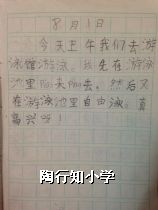 8月1日
今天上午我们去游
泳馆游泳。我先在游泳
池里跑来跑去,然后又
在游泳池里自由泳。真
高兴呀!
陶行知小学